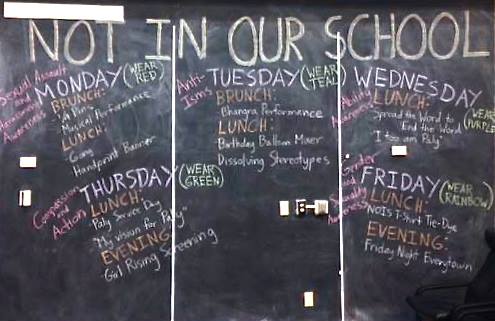 NOT IN OUR SCHOOL
Sexual Assault and Harassment Awareness
MONDAY (WEAR RED)
BRUNCH:
Musical Performance
LUNCH:
Handprint Banner
Anti-Isms
TUESDAY (WEAR TEAL)
BRUNCH:
Bhangra Performance
LUNCH:
Birthday Balloon Mixer
Dissolving Stereotypes
Ability Awareness
WEDNESDAY (WEAR PURPLE)
LUNCH:
Spread the Word to
End the Word
"I too am Paly"
Compassion and Action
THURSDAY (WEAR GREEN)
LUNCH:
Paly Service Day
"My vision for Paly"
EVENING:
Girl Rising Screening
Gender and Awareness
FRIDAY (WEAR RAINBOW)
LUNCH:
NOIS T-Shirt Tie-Dye
EVENING:
Friday Night Everytown